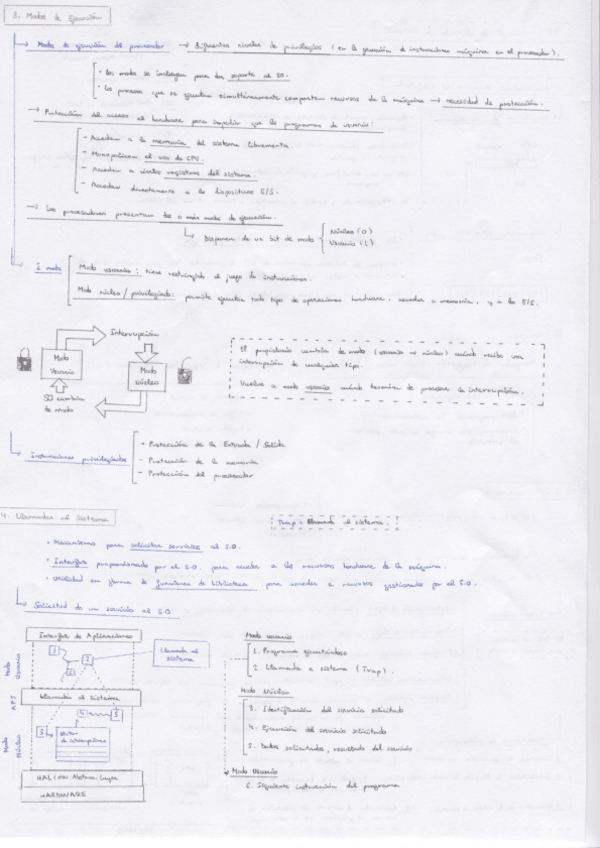 3. Modos de Ejecución
Modos de ejecución del procesador → Diferentes niveles de privilegios (en la ejecución de instrucciones máquina en el procesador).
· Los modos se incluyen para dar soporte al SO.
· Los procesos que se ejecutan simultáneamente comparten recursos de la máquina → necesidad de protección.
→ Protección del acceso al hardware para impedir que los programas de usuario:
- Accedan a la memoria del sistema libremente.
- Monopolicen el uso de CPU.
- Accedan a ciertos registros del sistema.
- Accedan directamente a los dispositivos E/S.
→ Los procesadores presentan dos o más modos de ejecución.
Disponen de un bit de modo
Núcleo (0)
Usuario (1)
2 modos
Modo usuario: tiene restringido el juego de instrucciones.
Modo núcleo / privilegiado: permite ejecutar todo tipo de operaciones hardware, accesos a memoria, y a los E/S.
Interrupción
Modo Usuario
Modo Núcleo
SO cambia de modo
El procesador cambia de modo (usuario → núcleo) cuando recibe una
interrupción de cualquier tipo.
Vuelve a modo usuario cuando termina de procesar la interrupción.
Instrucciones privilegiadas
• Protección de la Entrada / Salida
- Protección de la memoria
- Protección del procesador
4. Llamadas al Sistema
Trap = Llamada al sistema.
· Mecanismos para solicitar servicios al S.O.
· Interfaz proporcionado por el S.O. para acceder a los recursos hardware de la máquina.
· Utilidad en forma de funciones de biblioteca para acceder a recursos gestionados por el S.O.
Solicitud de un servicio al S.O
Interfaz de Aplicaciones
Llamada al Sistema
Modo Usuario
1
2
3
API
Llamadas al Sistema
Modo Núcleo
4
5
3
de interrupciones
HAL
HARDWARE
Modo usuario
1. Programa ejecutándose
2. Llamada a sistema (Trap).
Modo Núcleo
3. Identificación del servicio solicitado
4. Ejecución del servicio solicitado
5. Datos solicitados, resultado del servicio
Modo Usuario
6. Siguiente instrucción del programa